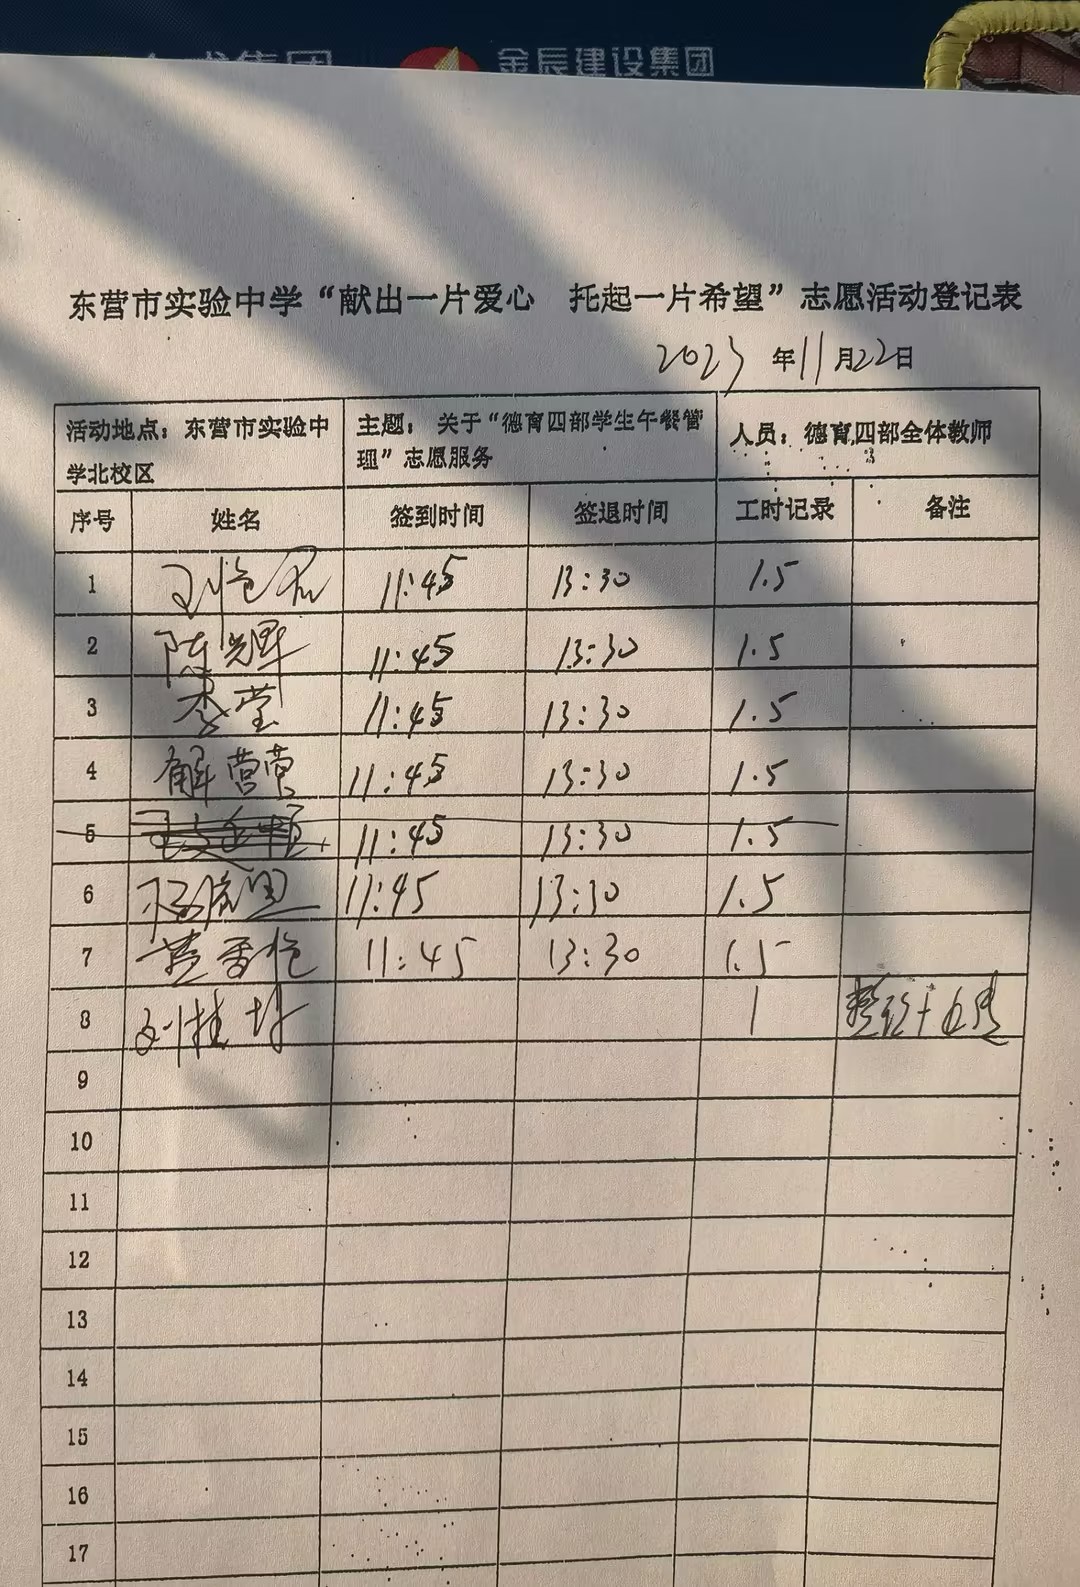 集团 金辰建设集团
东营市实验中学“献出一片爱心 托起一片希望”志愿活动登记表
2023年11月22日
活动地点：东营市实验中学北校区 主题：关于“德育四部学生午餐管理”志愿服务 人员：德育四部全体教师
序号 姓名 签到时间 签退时间 工时记录 备注
1 11:45 13:30 1.5
2 陈辉 11:45 13:30 1.5
3 李莹 11:45 13:30 1.5
4 解营营 11:45 13:30 1.5
5 11:45 13:30 1.5
6 11:45 13:30 1.5
7 11:45 13:30 1.5
8 1
9
10
11
12
13
14
15
16
17